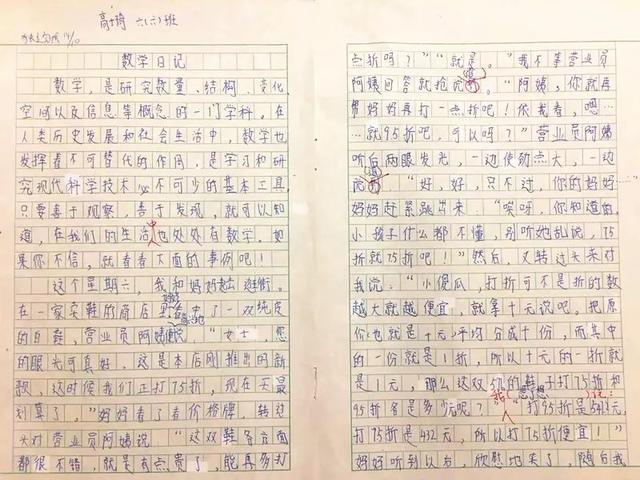 六(六)班
数学日记
数学，是研究数量、结构、变化
空间以及信息等概念的一门学科。在
人类历史发展和社会生活中，数学也
发挥着不可替代的作用，是学习和研
究现代科学技术必不可少的基本工具。
只要善于观察，善于发现，就可以知
道，在我们的生活中也处处有数学。如
果你不信，就看看下面的事例吧！
这个星期六，我和妈妈去逛街。
在一家卖鞋的商店里，了一双纯皮
的白鞋，营业员阿姨说：“女士，您
的眼光可真好，这是本店刚推出的新
款，这时候我们正打75折，现在买最
划算了。”妈妈看了看价格牌，转过
头对营业员阿姨说：“这双鞋各方面
都很不错，就是有点贵了，能再多打
点折吗？”“就是。”我不等营业员
阿姨回答就抢说道。“阿姨，你就再
帮妈妈再打一点折吧！你我看，嗯…
…就95折吧，可以吗？”营业员阿姨
听后两眼发光，一边使劲点头，一边
说道：“好，好，只不过，你的妈妈…”
妈妈赶紧跳出来：“哎呀，你知道的，
小孩子什么都不懂，别听她乱说，75
折就75折吧！”然后，又转过头来对
我说：“小傻瓜，打折可不是折的数
越大就越便宜，就拿十元说吧。把原
价也就是十元平均分成十份，而其中
的一份就是1折，所以十元的一折就
是1元，那么这双的鞋子打75折和
95折各是多少元呢？”我想想说：“打95折是543元，
打75折是432元，所以打75折便宜！”
妈妈听到以后，欣慰地笑了，随后我